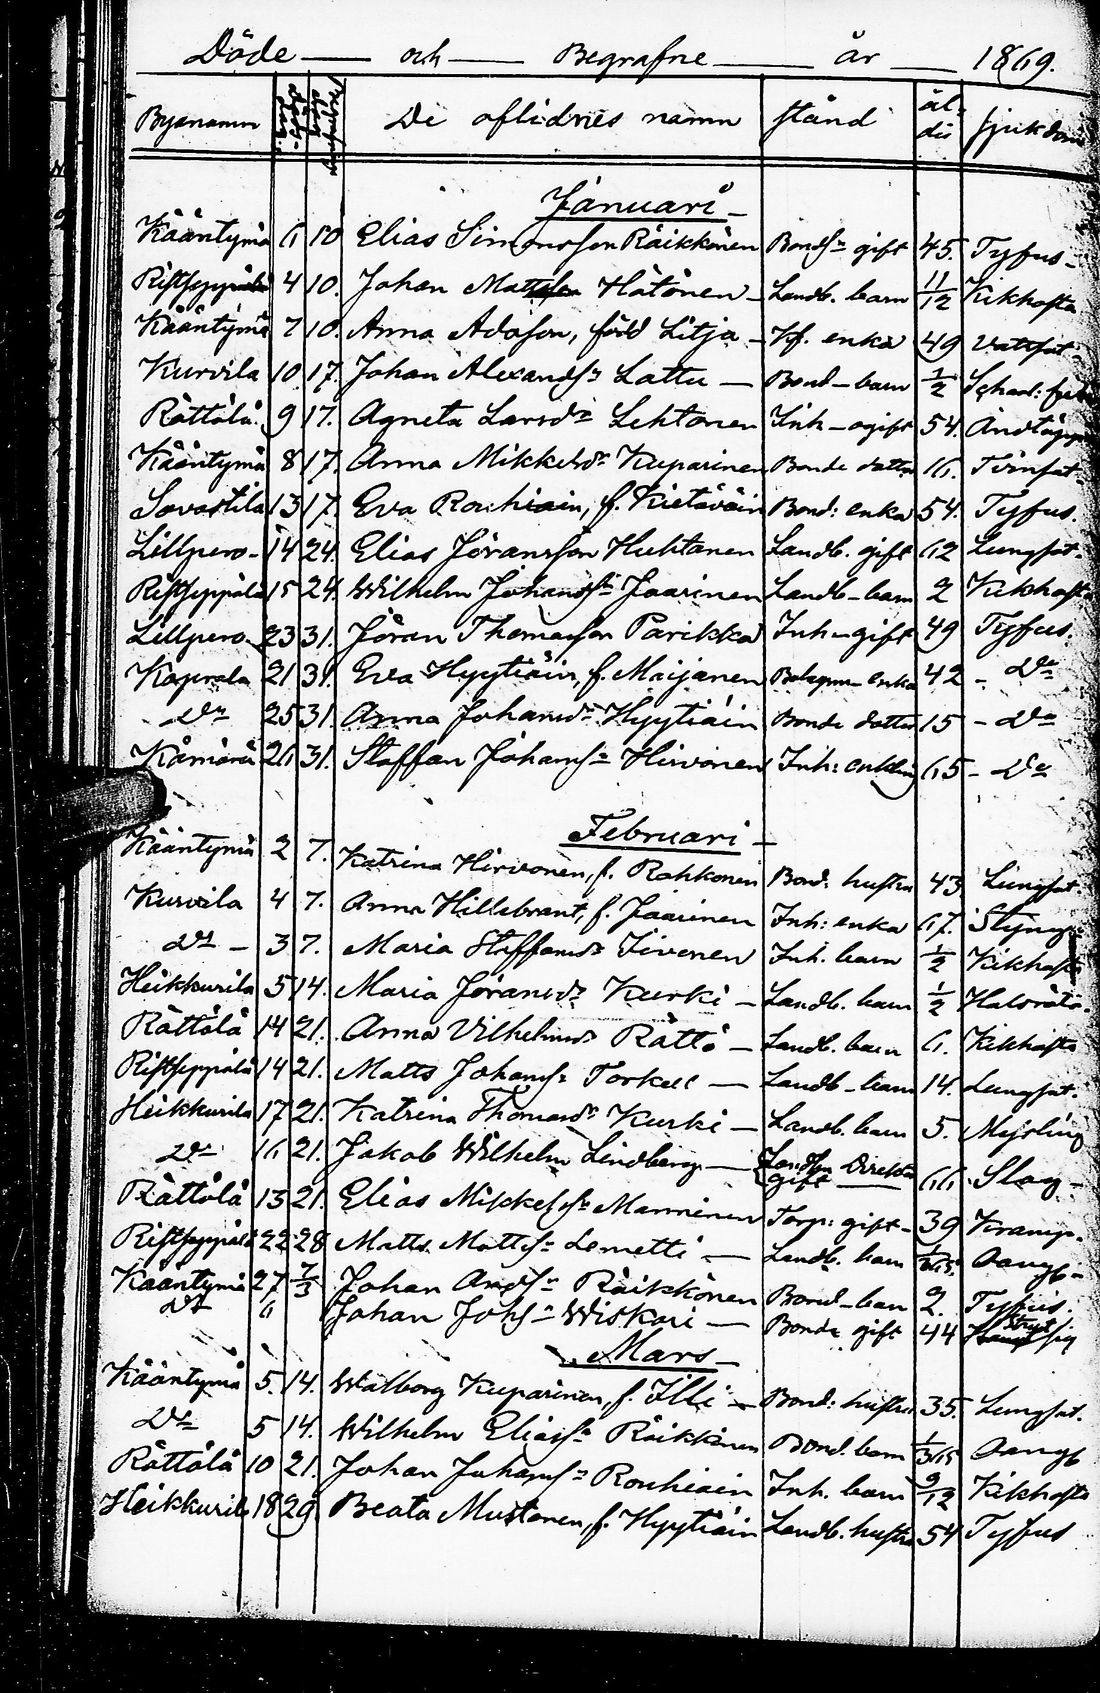 Döde — och — Begrafne — år — 1869.
Bysnamn De aflidnes namn stånd ål-der sjukdom
Januari
Kääntymä 6 10 Elias Simonsson Räikkönen Bondsn gift 45. Tyfus
Ristseppälä 4 10. Johan Hätönen Landb. barn 11/12 Kikhosta
Kääntymä 7 10. Anna Adasson, född Litja Kf. enka 49
Kurvila 10 17. Johan Alexandsn Lattu Bond barn 1/2
Rättölä 9 17. Agneta Larsdr Lehtonen Inh ogift 54.
Kääntymä 8 17. Anna Mikkelsdr Kuparinen Bonde dotter 16. Tvinsot
Savastila 13 17. Eva Rouhiain, f. Kietäväin Bond: enka 54. Tyfus.
Lillpero 14 24. Elias Jöransson Huhtanen Landb. gift 62 Lungsot.
Ristseppälä 15 24. Wilhelm Johanssn Jaarinen Landb barn 2 Kikhosta
Lillpero 23 31. Jöran Thomasson Parikka Inh gift 49 Tyfus.
Kaprala 21 31. Eva Hyytiäin, f. Maijanen enka 42 - Do
Do 25 31. Anna Johansdr Hyytiäin Bonde dotter 15 - Do
Kämärä 26 31. Staffan Johanssn Hirvonen Inh: enkling 65 - Do
Februari
Kääntymä 2 7. Katrina Hirvonen, f. Rohkonen Bond: hustru 43 Lungsot.
Kurvila 4 7. Anna Hillebrant, f. Jaarinen Inh: enka 67. Styng
Do 3 7. Maria Staffansdr Sivonen Inh. barn 1/2 Kikhosta
Heikkurila 5 14. Maria Jöransdr Kurki Landb. barn 1/2 Halsröta.
Rättölä 14 21. Anna Vilhelmsdr Rättö Landb. barn 6. Kikhosta
Ristseppälä 14 21. Matts Johanssn Torkell Landb barn 14. Lungsot.
Heikkurila 17 21. Katrina Thomasdr Kurki Landb. barn 5. Mesling
Do 16 21. Jakob Wilhelm Lindberg gift Direktör 66. Slag
Rättölä 13 21. Elias Mikkelssn Manninen Torp: gift 39 Kramp.
Ristseppälä 22 28 Matts Mattsn Lemetti Landb. barn 1/365 Oangf
Kääntymä 27 7/3 Johan Andsn Räikkönen Bond barn 2. Tyfus.
Do 6 Johan Johsn Wiskari Bonde gift 44
Mars
Kääntymä 5. 14. Walborg Kuparinen, f. Illi Bond: hustru 35. Lungsot.
Do 5 14. Wilhelm Eliassn Räikkönen Bond. barn 1/365 Oangf
Rättölä 10 21. Johan Johanssn Rouhiain Inh. barn 9/12 Kikhosta
Heikkurila 18 29 Beata Mustonen, f. Hyytiäin Landb. hustru 54 Tyfus